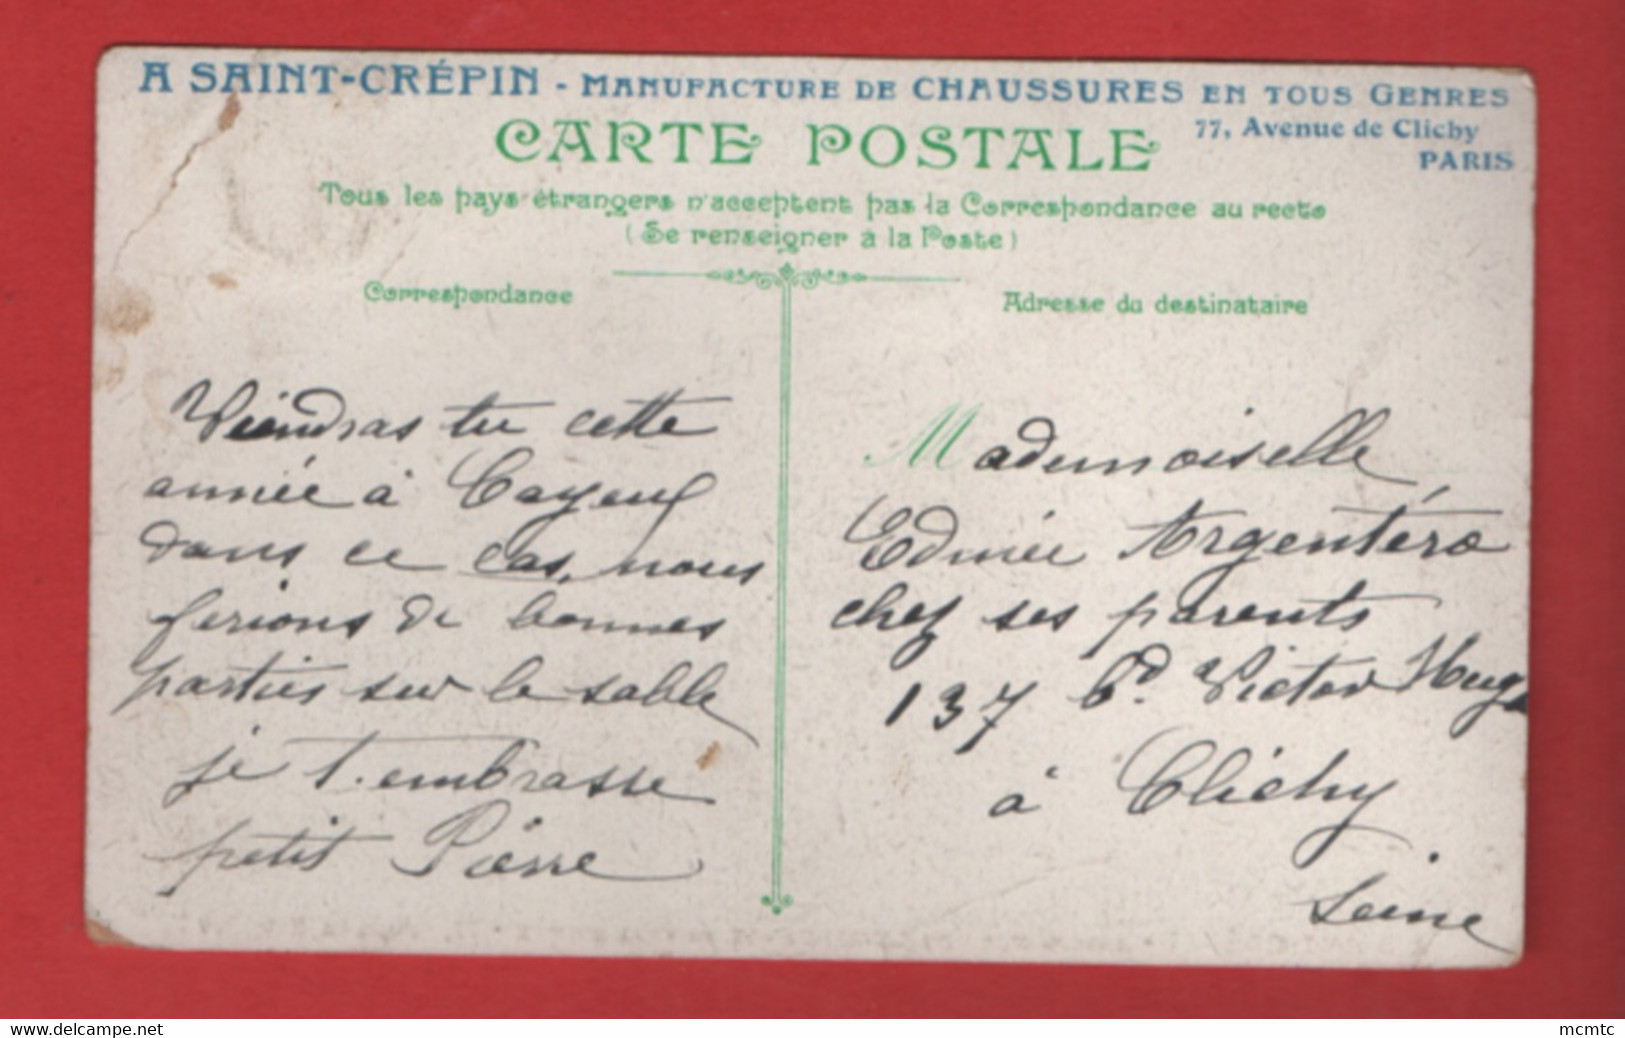 A SAINT-CRÉPIN - MANUFACTURE DE CHAUSSURES EN TOUS GENRES
77, Avenue de Clichy
PARIS
CARTE POSTALE
Tous les pays étrangers n'acceptent pas la Correspondance au recto
(Se renseigner à la Poste)
Correspondance
Viendras tu cette
année à Cayeux
dans ce cas, nous
ferions de bonnes
parties sur le sable
je t'embrasse
petit Pierre
Adresse du destinataire
Mademoiselle
Edmée Argentéro
chez ses parents
137 bd. Victor Hugo
à Clichy
Seine
www.delcampe.net
mcmtc